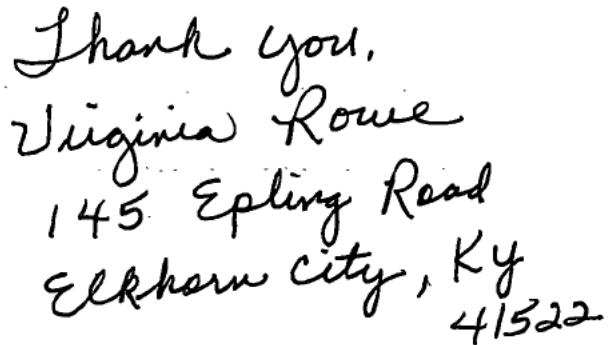 Thank you,
Virginia Rowe
145 Epling Road
Elkhorn City, Ky
41522